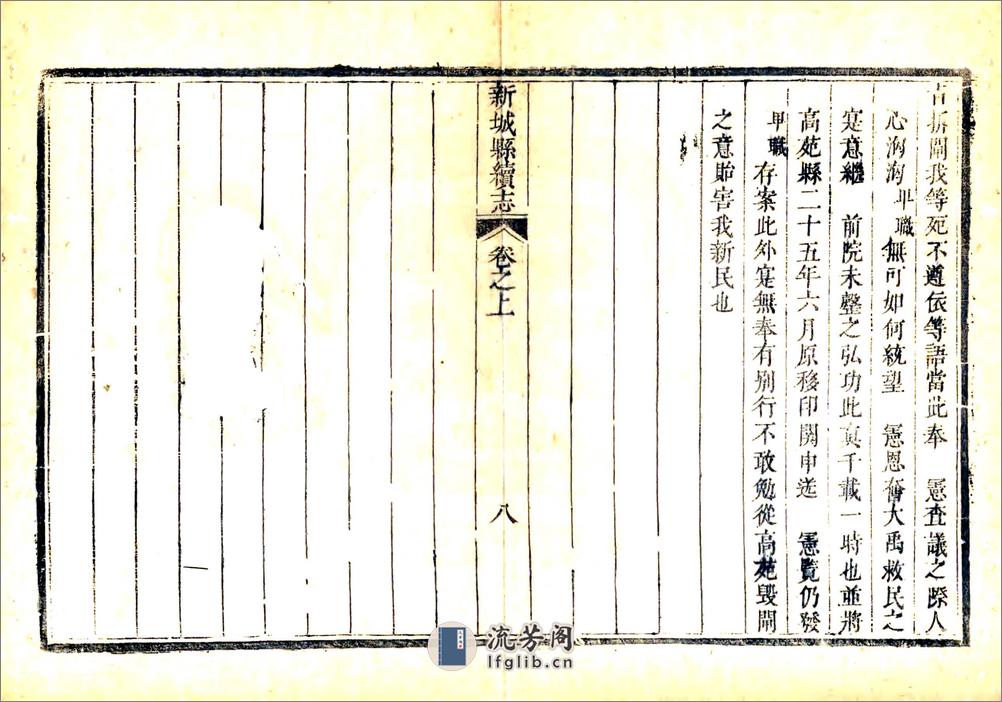 言拆閘我等死不遵依等語當此奉　憲查議之際人
心洶洶卑職無可如何統望　憲恩奮大禹救民之
寔意繼　前院未盤之弘功此真千載一時也並將
高苑縣二十五年六月原移印関申送　憲覽仍發
卑職存案此外寔無奉有別行不敢勉從高苑毀閘
之意貽害我新民也
新城縣續志
卷之上
八
流芳阁
lfglib.cn